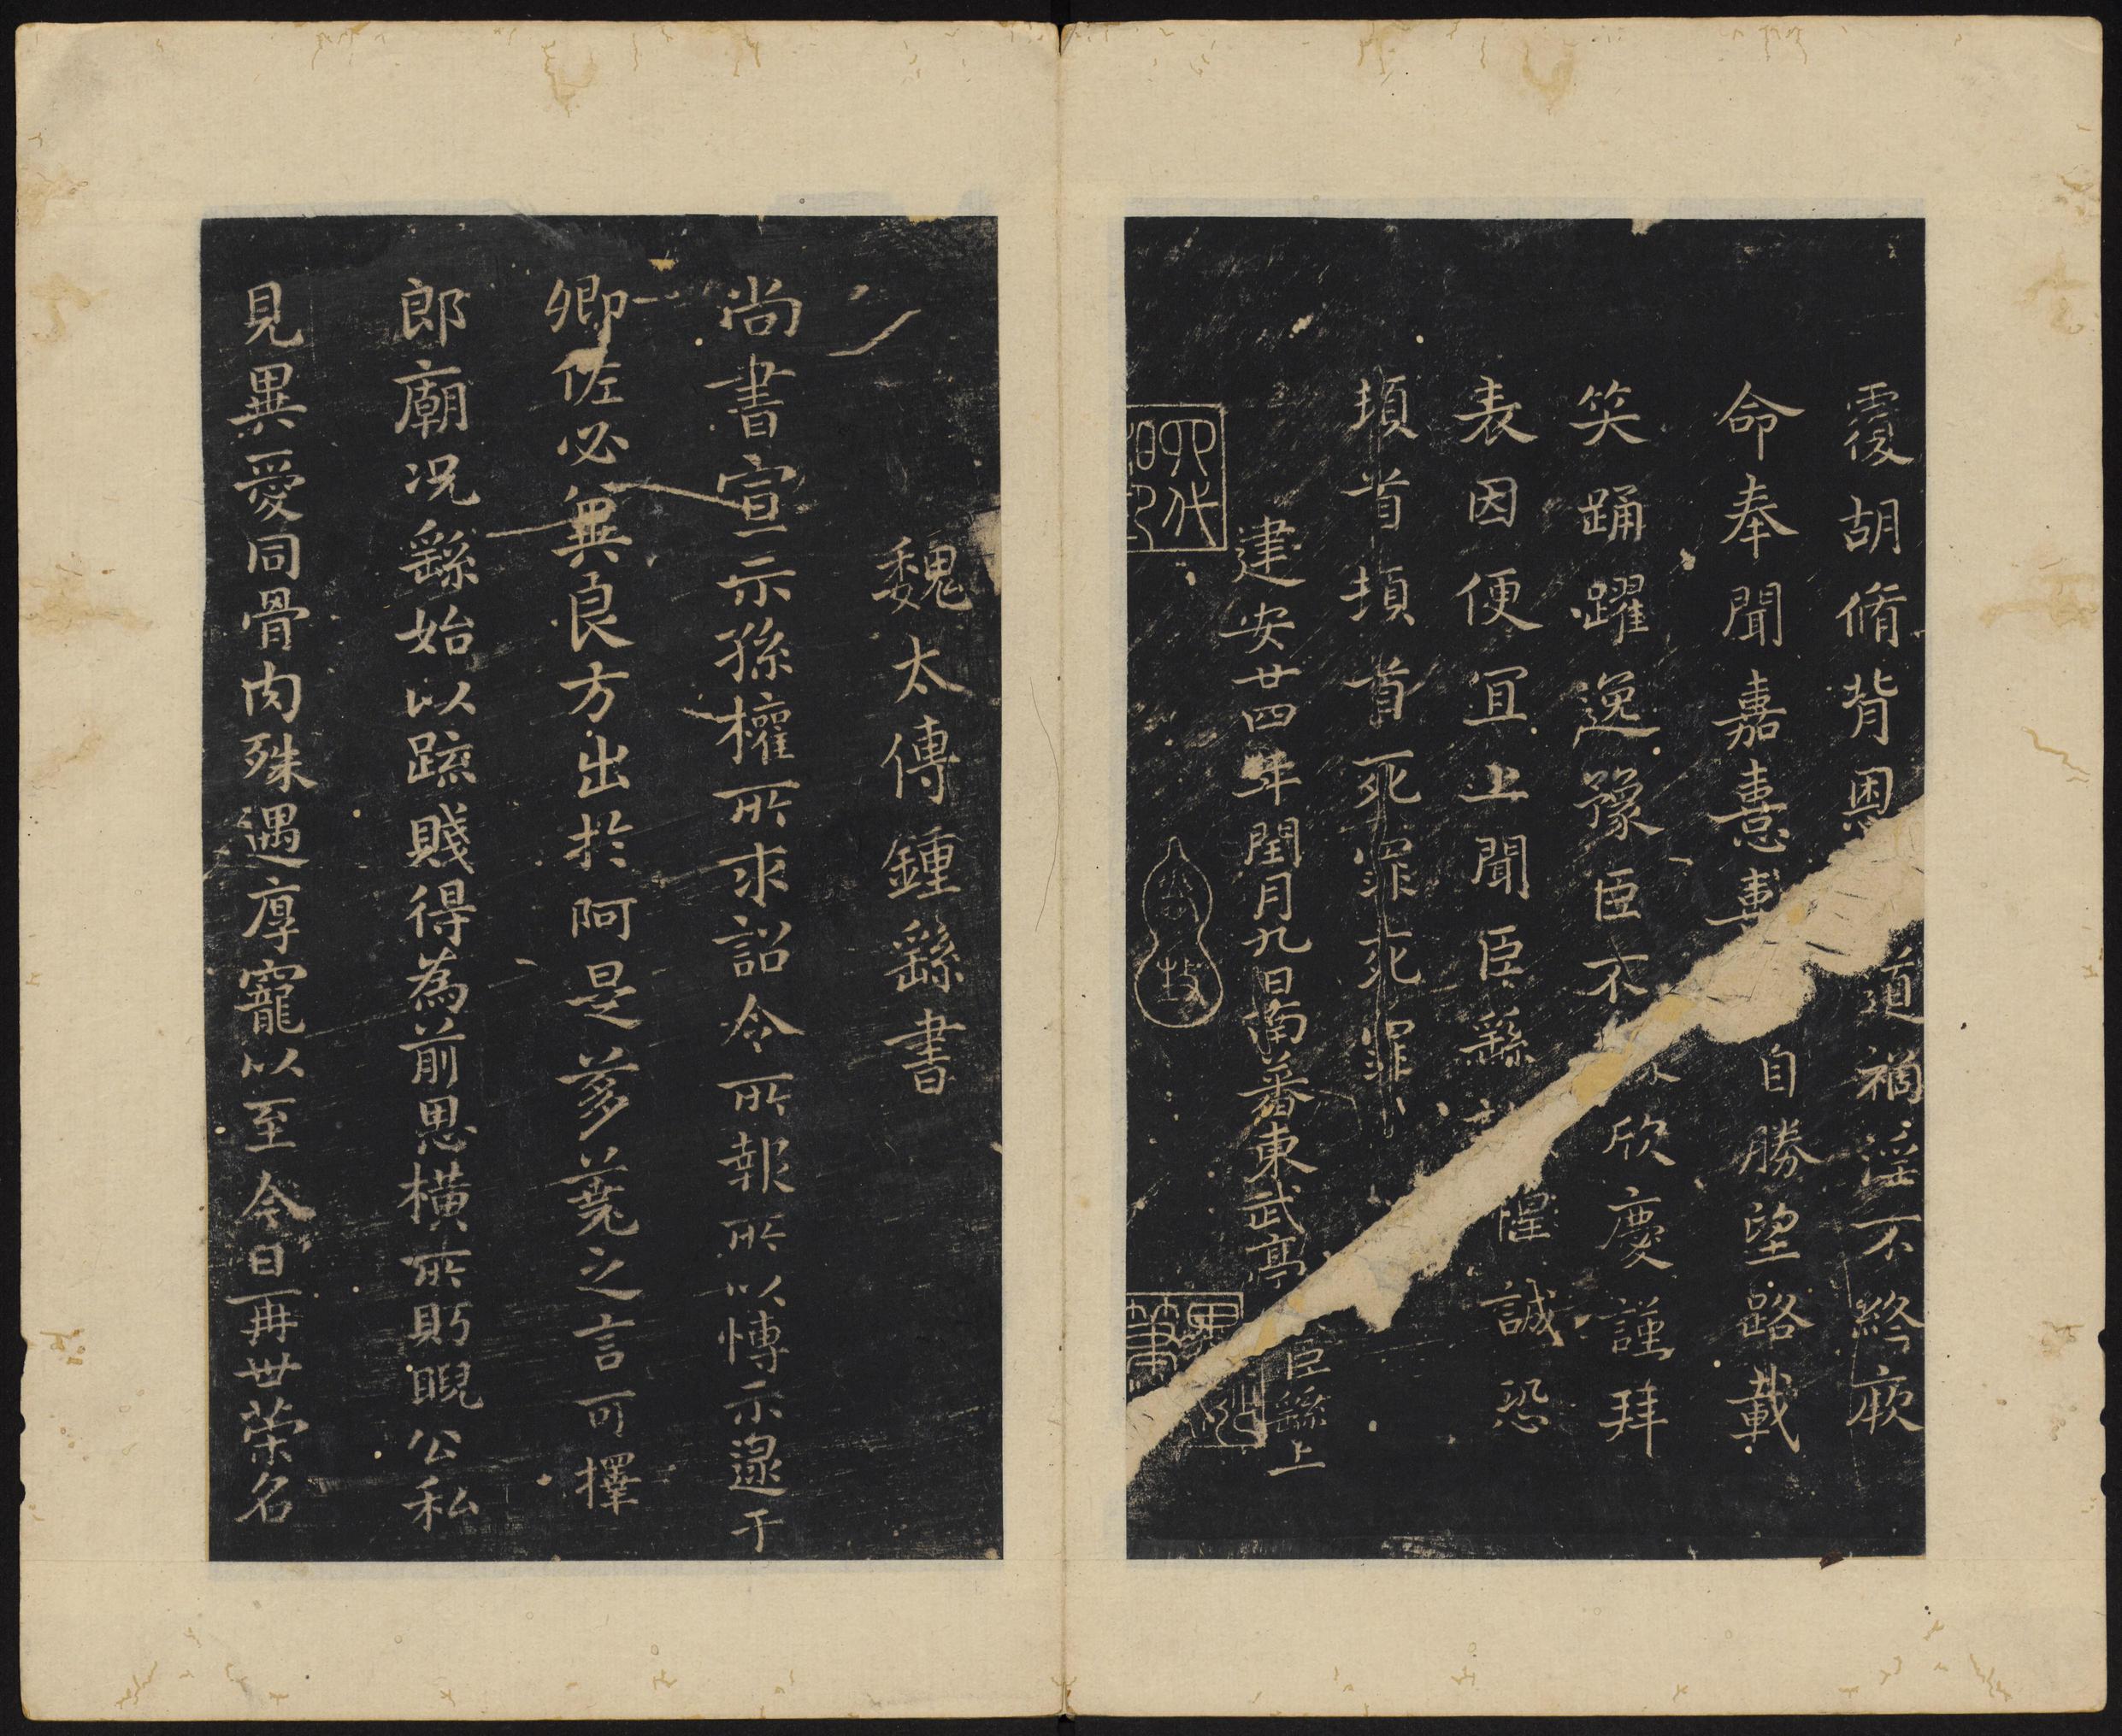 覆胡脩背恩
道禍淫不終厥
命奉聞嘉憙
自勝望路載
笑踊躍逸豫臣不
欣慶謹拜
表因便宜上聞臣繇
惶誠恐
頓首頓首死罪死罪
建安廿四年閏月九日南蕃東武亭
臣繇上
魏太傅鍾繇書
尚書宣示孫權所求詔令所報所以博示逮于
卿佐必冀良方出於阿是芻蕘之言可擇
郎廟況繇始以疏賤得為前恩橫所眄睨公私
見異愛同骨肉殊遇厚寵以至今日再世榮名